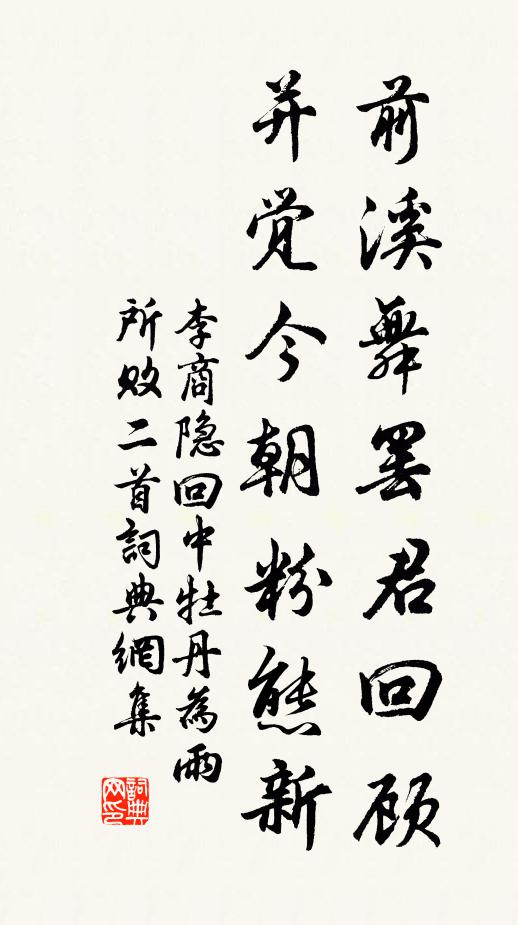 前溪舞罢君回顾
并觉今朝粉態新
李商隐回中牡丹為雨
所败二首詞典網集
詞典
网印